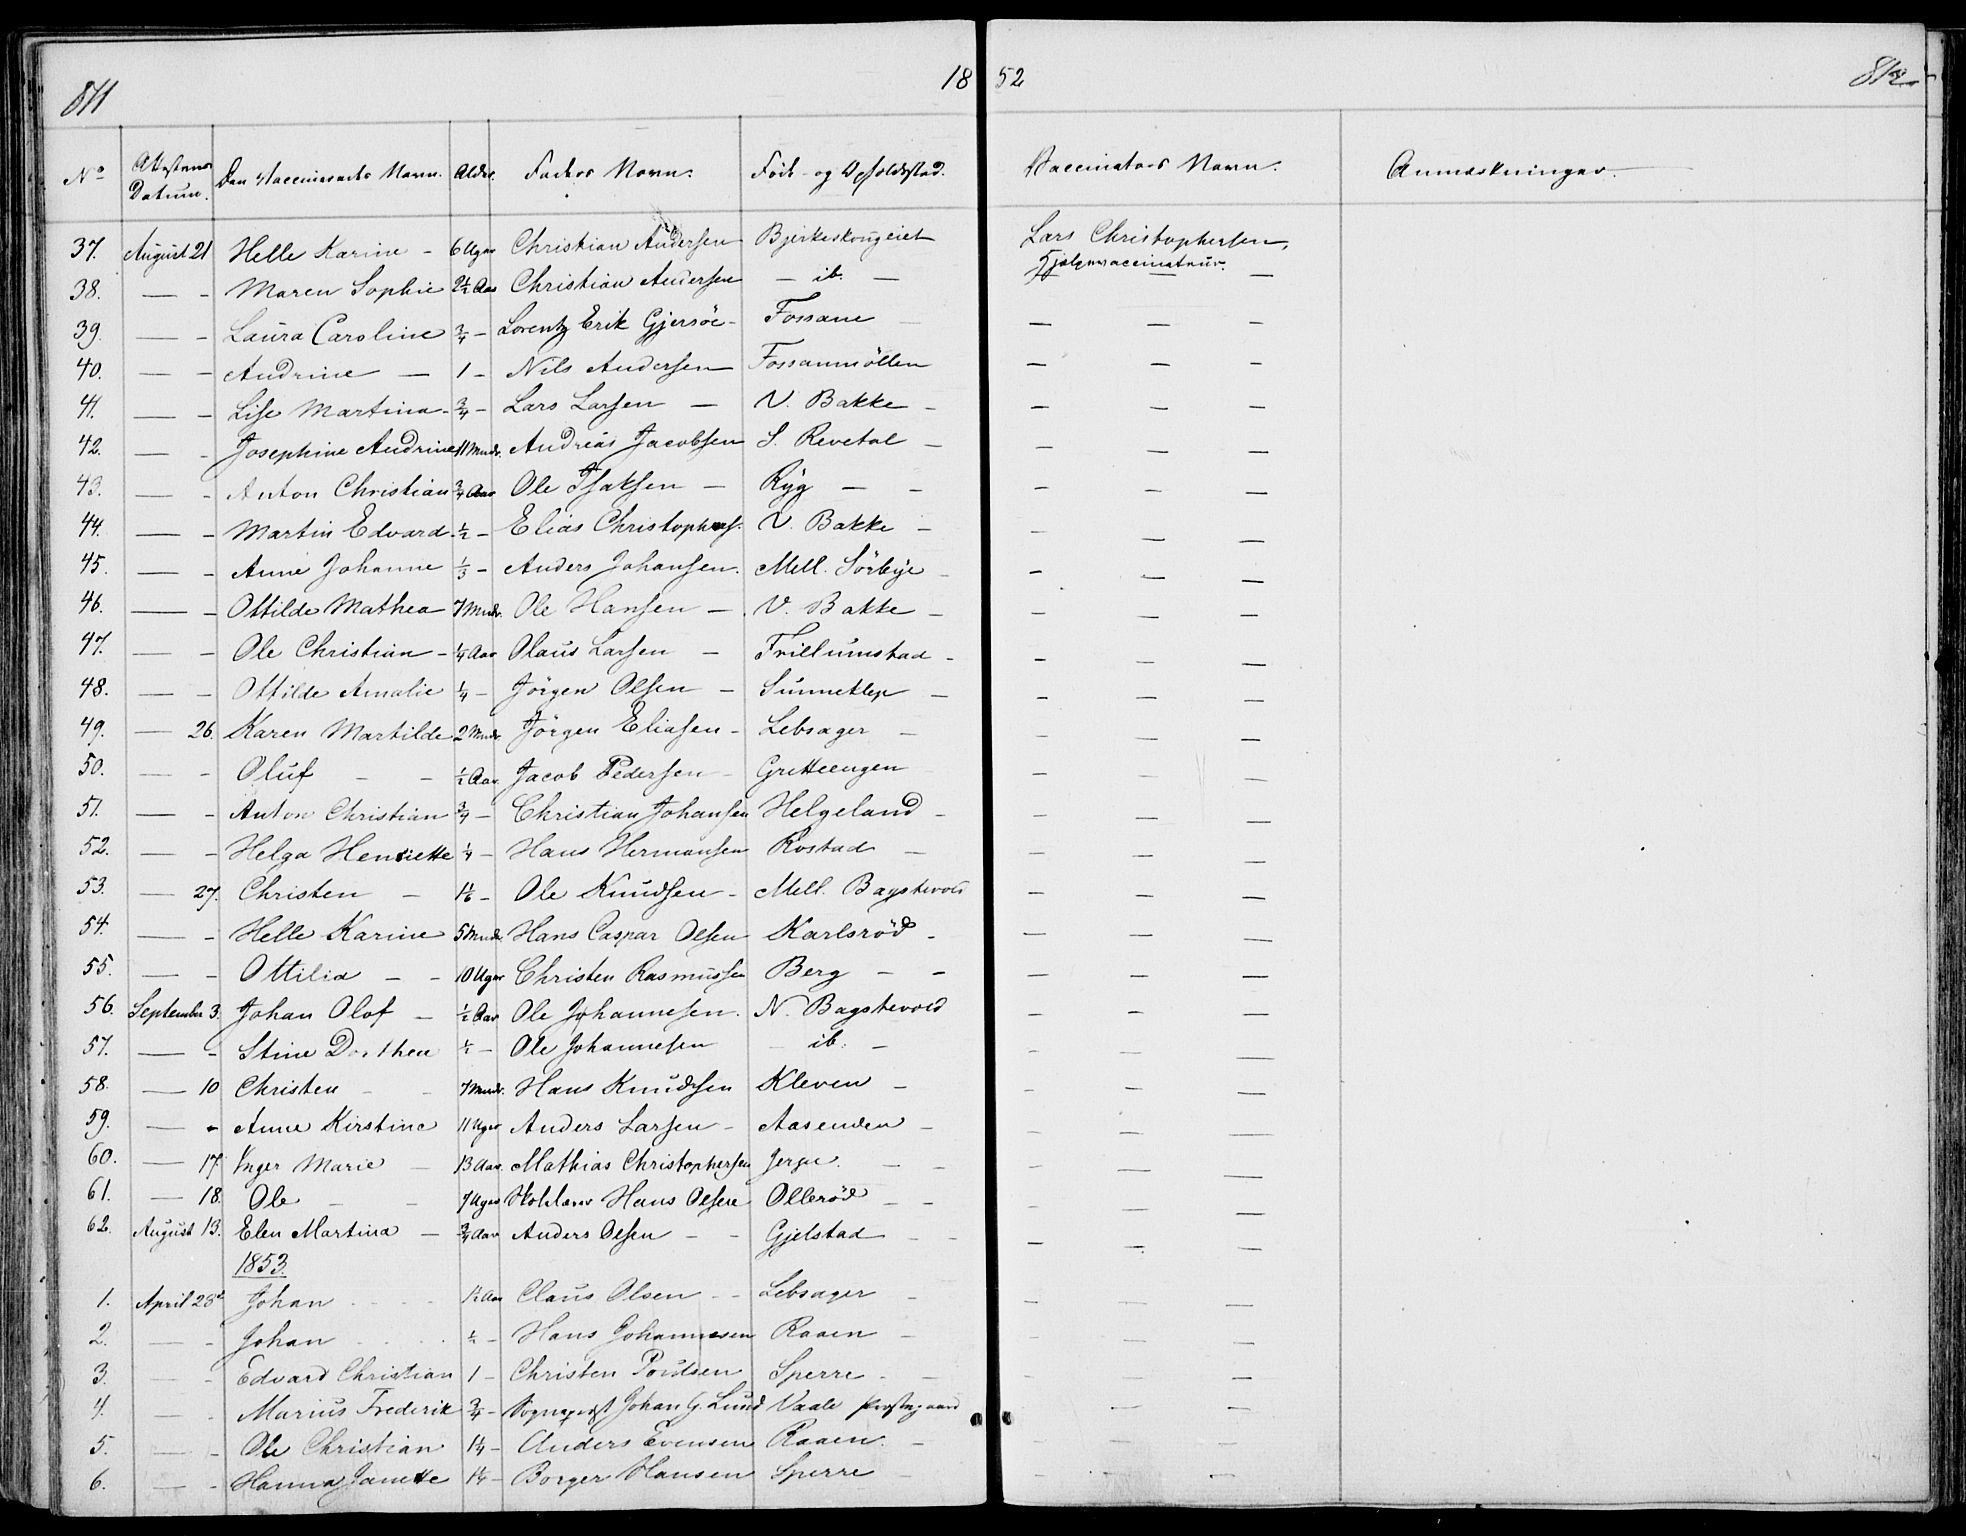 811 18 52 812
No Attestens Datum. Den Vaccineredes Navn. Alder. Faders Navn. Føde- og Opholdsted. Vaccinators Navn. Anmærkninger.
37. August 21 Helle Karine - 6 Uger Christian Andersen Bjerkeskougeiet Lars Christophersen, Hjelpevaccinateur.
38. — - Maren Sophie 2½ Aar Christian Andersen — ib. — —
39. — - Laura Caroline ¾ — Lorentz Erik Gjersöe - Fossane — — — -
40. — - Andrine — 1 - Nils Andersen Fossanmöllen — — -
41. — - Lise Martina - ¾ - Lars Larsen — V. Bakke - — — —
42. — - Josephine Andrine 11 Mndr. Andreas Jacobsen S. Revetal — - — —
43. — - Anton Christian ¾ Aar Ole Isaksen — Ryg — - - — —
44. — - Martin Edvard - ½ - Elias Christophers. V. Bakke - - — —
45. — - Anne Johanne ⅓ - Anders Johansen. Mell. Sörbye - - — —
46. — - Ottilde Mathea 7 Mndr. Ole Hansen — V. Bakke - — — —
47. — - Ole Christian - ¼ Aar Olaus Larsen — Trillumstad - - — —
48. — - Ottilde Amalie ¼ - Jörgen Olsen - Sunnetlep — - — —
49. — 26. Karen Martilde 2 Mndr. Jörgen Eliasen - Lebsager - — — —
50. — - Oluf - - ½ Aar Jacob Pedersen - Gretteengen — — —
51. — - Anton Christian ¾ - Christian Johansen Helgeland - — — —
52. — - Helga Henriette ¼ - Hans Hermansen Rostad — — — —
53. — 27. Christen - 1⅙ - Ole Knudsen - Mell. Bagstevold — — —
54. — - Helle Karine 5 Mndr. Hans Caspar Olsen Karlsröd - — — —
55. — - Ottilia - - 10 Uger Christen Rasmussen Berg - - — — —
56. September 3. Johan Olof - ½ Aar Ole Johannesen. N. Bagstevold - - —
57. — - Stine Dorthea ½ - Ole Johannesen ib. - — — —
58. — 10 Christen - - 7 Mndr. Hans Knudsen Kleven - — — —
59. — - Anne Kirstine 11 Uger Anders Larsen - Aasenden - — — —
60. — 17 Inger Marie - 13 Aar. Mathias Christophersen Jerpe. - - — — —
61. — 18. Ole - - 7 Uger Skolelærer Hans Olsen Olleröd - - — — —
62. August 13. Elen Martina — ¾ Aar Anders Olsen - - Gjelstad - - — — —
1853.
1. April 28de Johan - - - 1½ Aar Claus Olsen - - Lebsager - - — —
2. — - Johan - - - ½ - Hans Johannesen Raaen - - — —
3. — - Edvard Christian 1 - Christen Poulsen Sperre - - - — —
4. — - Marius Frederik ¾ - Sogneprest Johan G. Lund Vaale Prestegaard — —
5. — - Ole Christian 1¼ - Anders Evensen Raaen. - - — —
6. — - Hanna Janette 1¼ - Borger Hansen Sperre - - — —